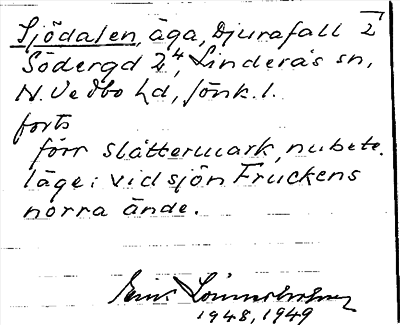 Sjödalen, äga, Djurafall 2
Södergd 2⁴, Linderås sn,
N. Vedbo hd, Jönk. l.
forts
förr slåttermark, nu bete.
läge: vid sjön Fruckens
norra ände.
1948, 1949